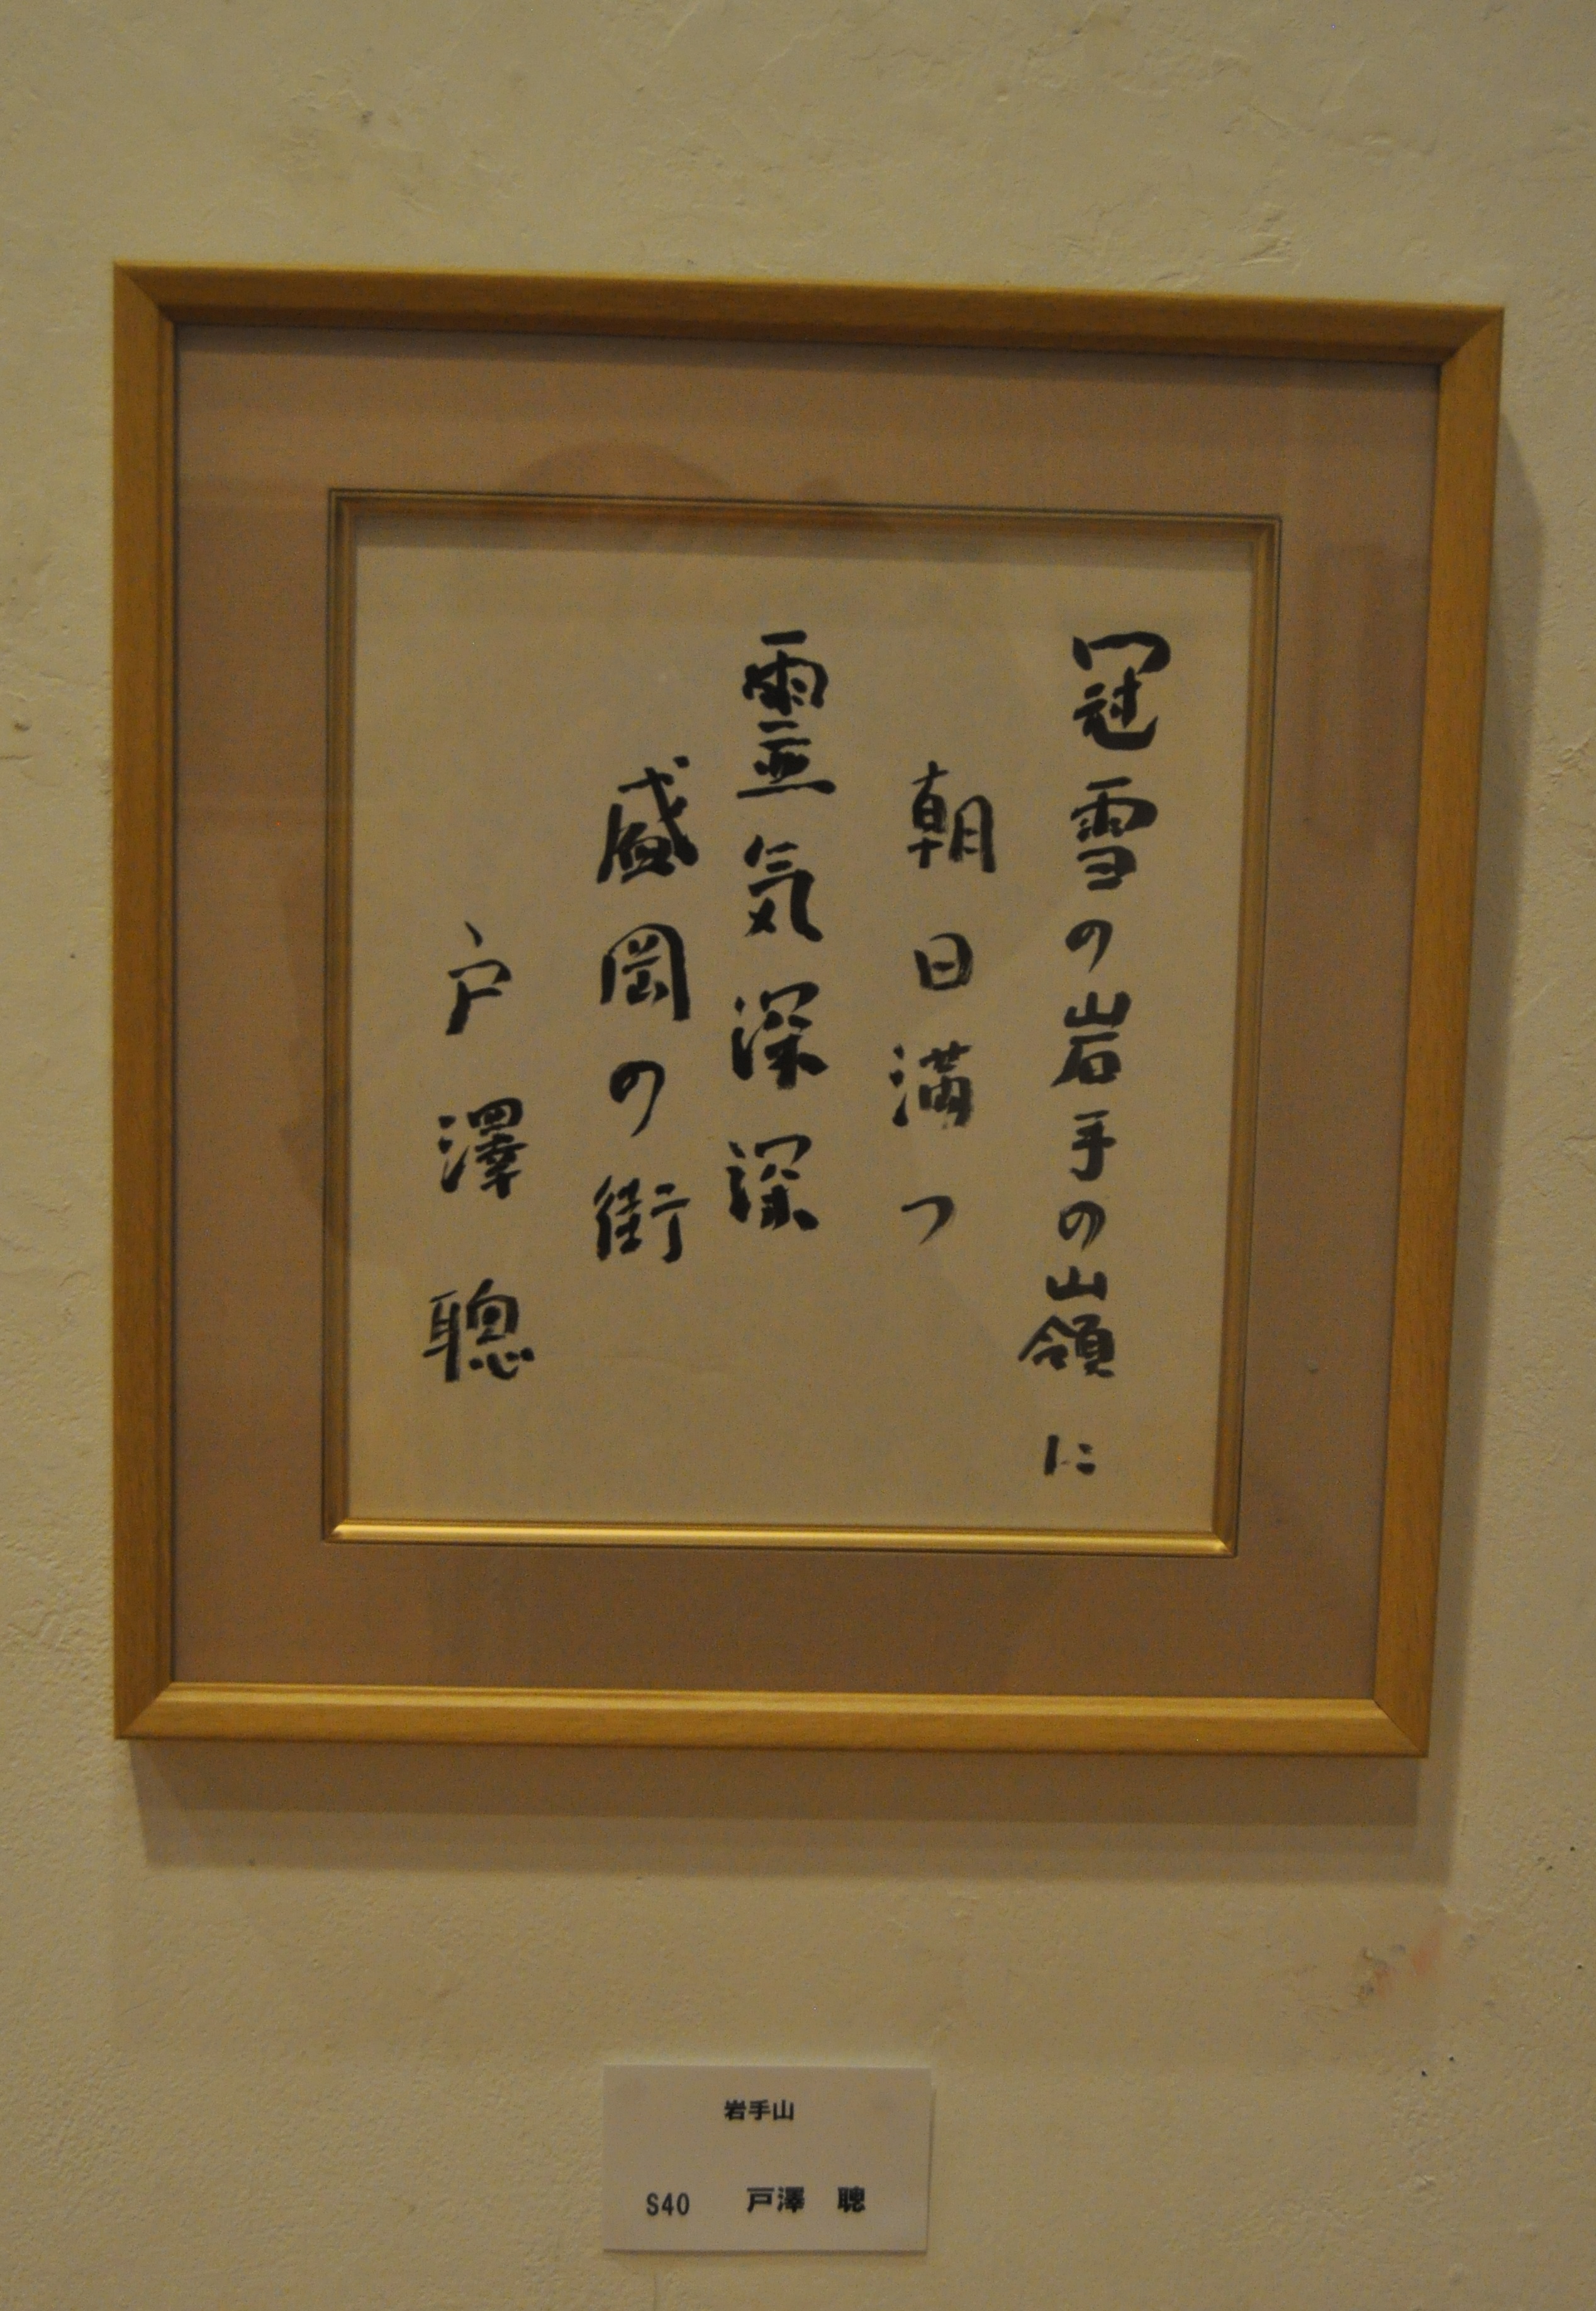 冠雪の岩手の山嶺に
朝日満つ
霊気深深
盛岡の街
戸澤聰
岩手山
S40 戸澤 聰